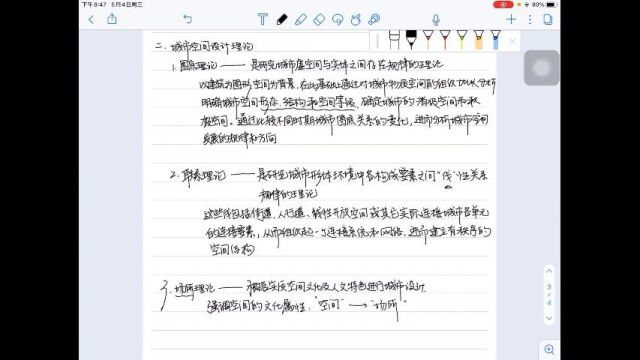 下午8:47 5月4日周三
80%
二、城市空间设计理论
1.图底理论 —— 是研究城市虚空间与实体之间存在规律的理论
以建筑为图形,空间为背景,在此基础上通过对城市物质空间的组织加以分析
明确城市空间形态、结构和空间等级,确定城市的积极空间和消
极空间。通过比较不同时期城市图底关系的变化,进而分析城市空间
发展的规律和方向
2.联系理论 —— 是研究城市形体环境中各构成要素之间“线”性关系
规律的理论
这些线包括街道、人行道、线性开放空间或其它实际连接城市各单元
的连接要素,从而组织起一个连接系统和网络,进而建立有秩序的
空间结构
3.场所理论 —— 根据实质空间文化及人文特色进行城市设计
强调空间的文化属性,“空间”→“场所”
3
4